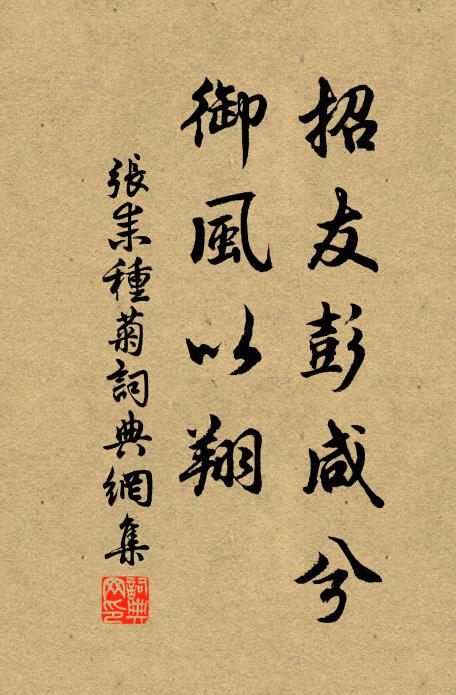 招友彭咸兮
御風以翔
張耒種菊詞典網集
詞典网印